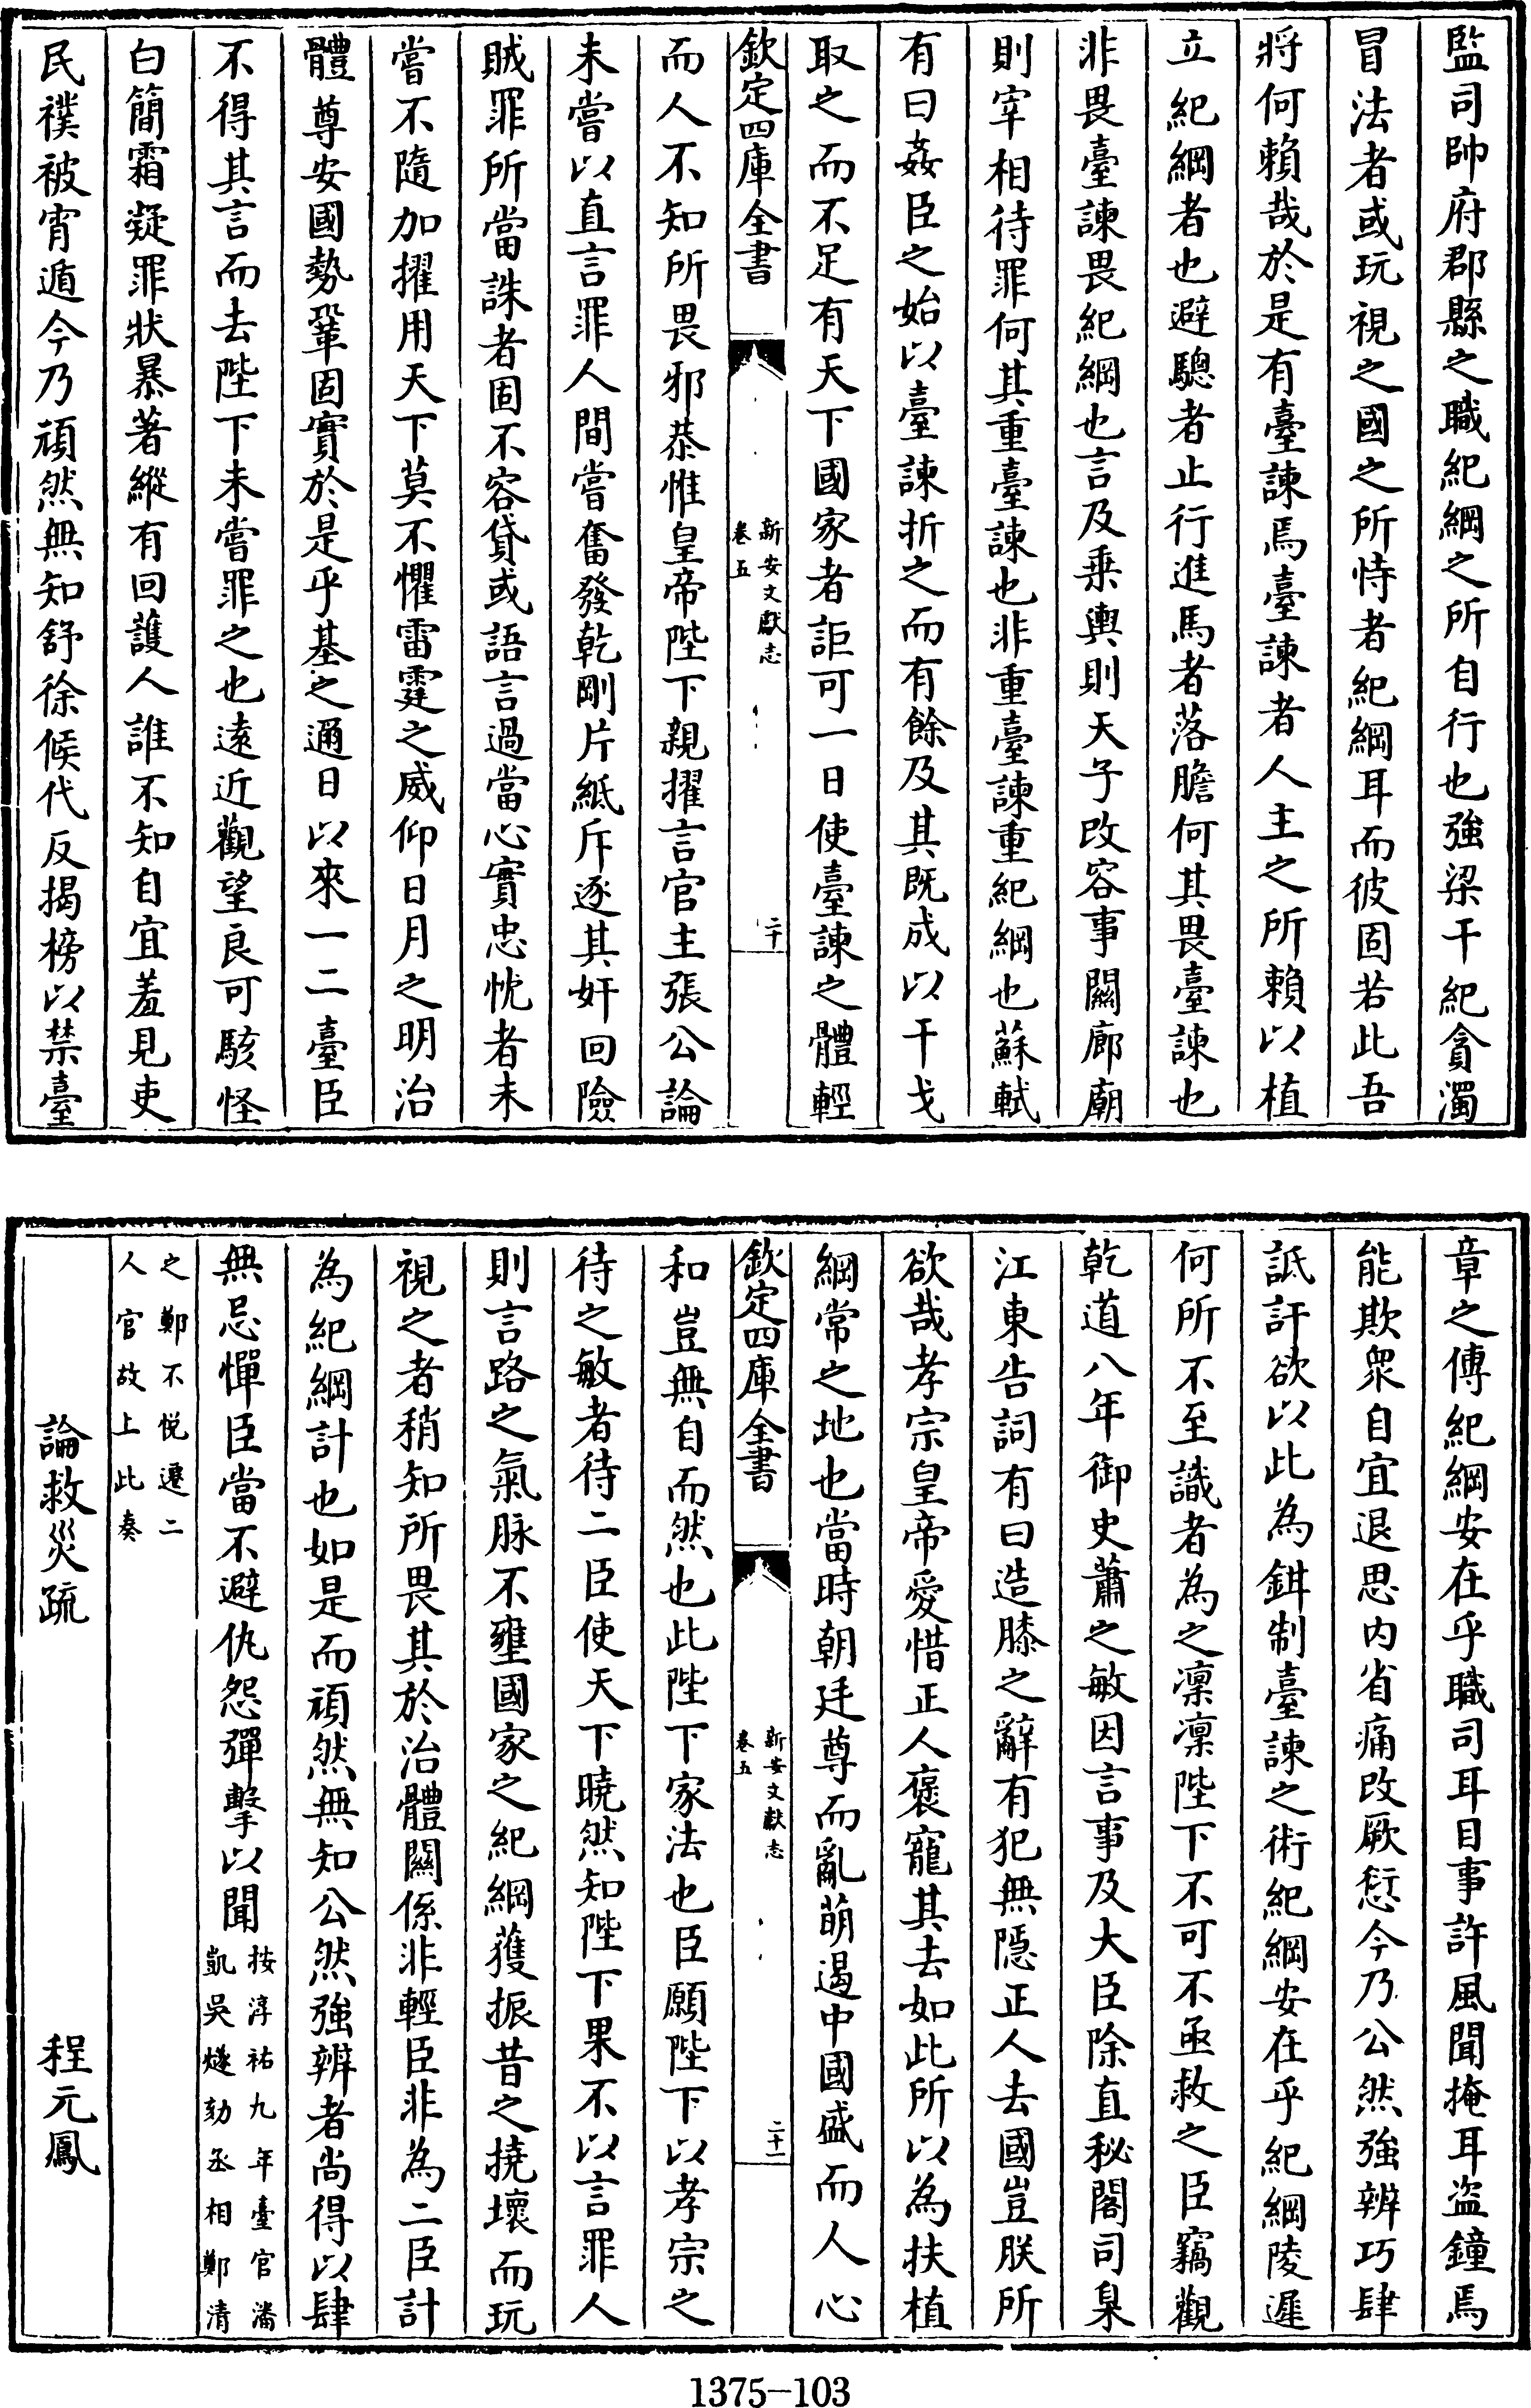 監司帥府郡縣之職紀綱之所自行也強梁干紀貪濁
冒法者或玩視之國之所恃者紀綱耳而彼固若此吾
將何賴哉於是有臺諫焉臺諫者人主之所賴以植
立紀綱者也避驄者止行進馬者落膽何其畏臺諫也
非畏臺諫畏紀綱也言及乗輿則天子改容事關廊廟
則宰相待罪何其重臺諫也非重臺諫重紀綱也蘇軾
有曰姦臣之始以臺諫折之而有餘及其既成以干戈
取之而不足有天下國家者詎可一日使臺諫之體輕
欽定四庫全書
新安文獻志
卷五
二十
而人不知所畏邪恭惟皇帝陛下親擢言官主張公論
未嘗以直言罪人間嘗奮發乾剛片紙斥逐其奸回險
賊罪所當誅者固不容貸或語言過當心實忠忱者未
嘗不隨加擢用天下莫不懼雷霆之威仰日月之明治
體尊安國勢鞏固實於是乎基之邇日以來一二臺臣
不得其言而去陛下未嘗罪之也遠近觀望良可駭怪
白簡霜凝罪狀暴著縱有回護人誰不知自宜羞見吏
民襆被宵遁今乃頑然無知舒徐候代反揭榜以禁臺
章之傳紀綱安在乎職司耳目事許風聞掩耳盜鐘焉
能欺衆自宜退思内省痛改厥愆今乃公然強辨巧肆
詆訐欲以此為鉗制臺諫之術紀綱安在乎紀綱陵遲
何所不至識者為之凜凜陛下不可不亟救之臣竊觀
乾道八年御史蕭之敏因言事及大臣除直秘閣司臬
江東告詞有曰造膝之辭有犯無隠正人去國豈朕所
欲哉孝宗皇帝愛惜正人褒寵其去如此所以為扶植
綱常之地也當時朝廷尊而亂萌遏中國盛而人心
欽定四庫全書
新安文獻志
卷五
二十一
和豈無自而然也此陛下家法也臣願陛下以孝宗之
待之敏者待二臣使天下曉然知陛下果不以言罪人
則言路之氣脉不壅國家之紀綱獲振昔之撓壞而玩
視之者稍知所畏其於治體關係非輕臣非為二臣計
為紀綱計也如是而頑然無知公然強辨者尚得以肆
無忌憚臣當不避仇怨彈擊以聞按淳祐九年臺官潘
凱吳燧劾丞相鄭清
之鄭不悦遷二
人官故上此奏
論救災疏　程元鳳
1375-103